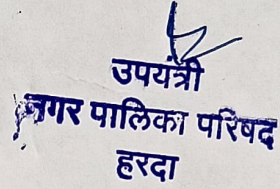 उपयंत्री
नगर पालिका परिषद
हरदा